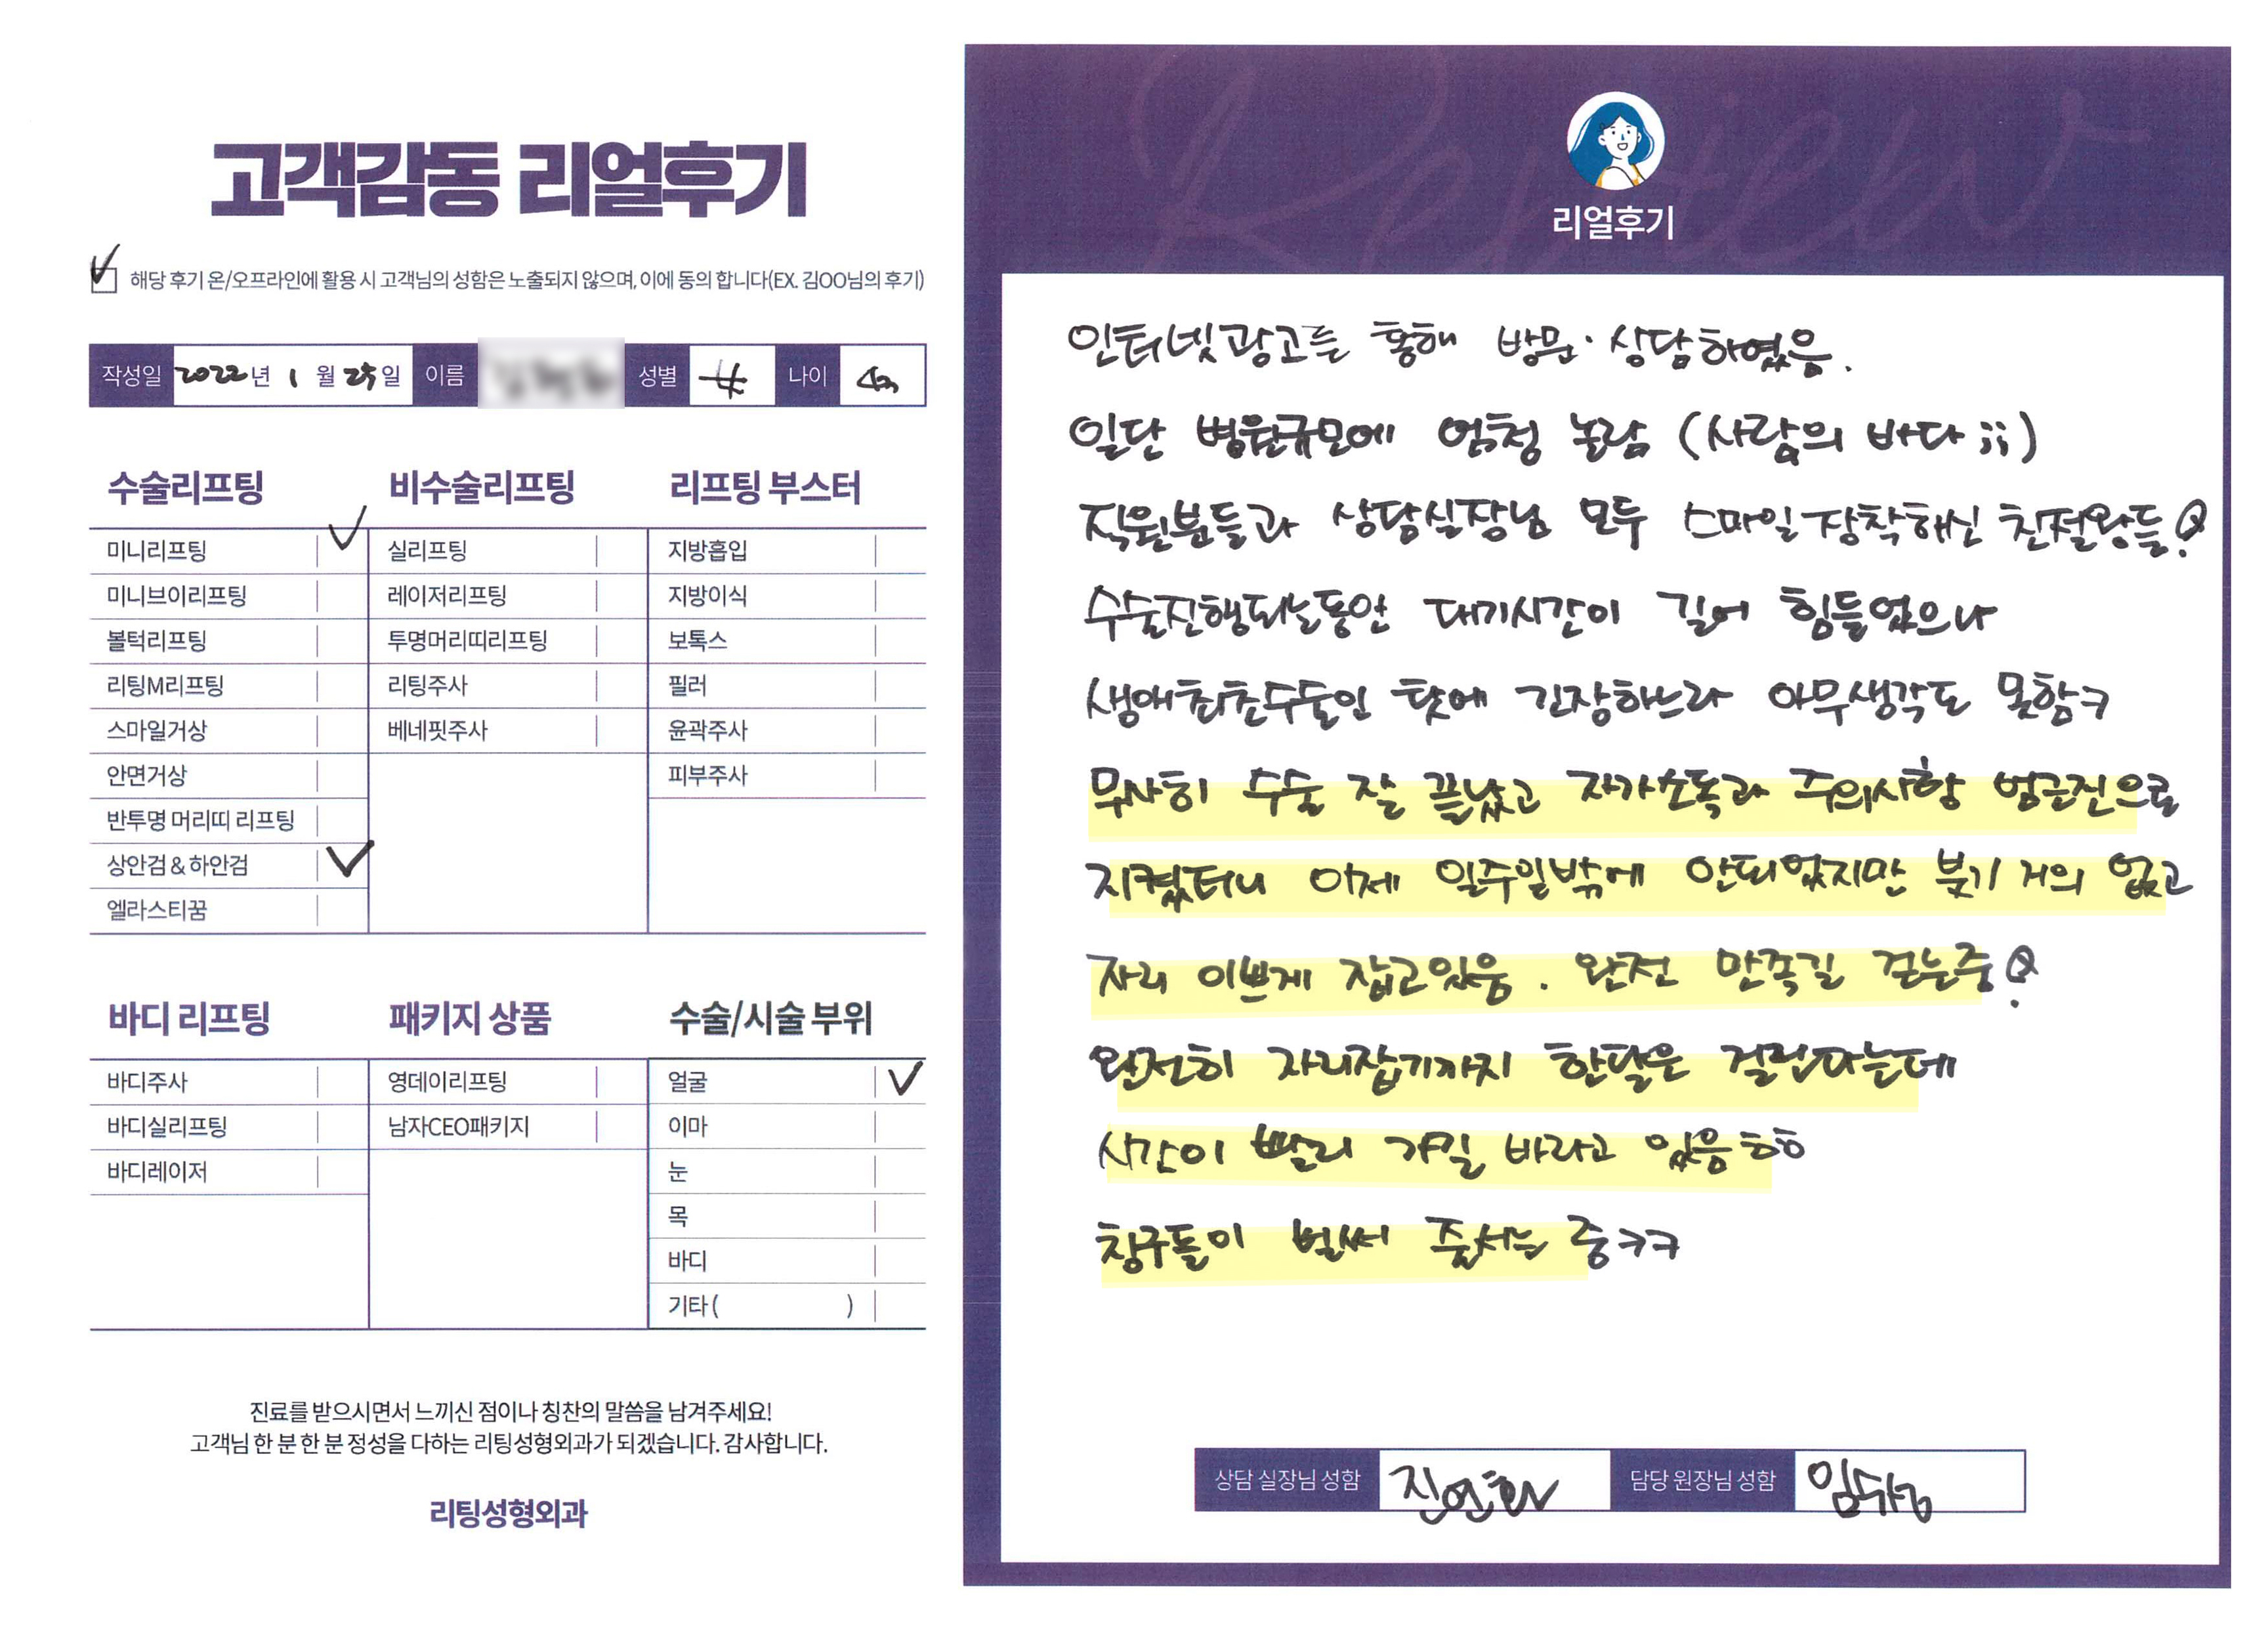 고객감동 리얼후기
해당 후기 온/오프라인에 활용 시 고객님의 성함은 노출되지 않으며, 이에 동의 합니다(EX. 김OO님의 후기)
작성일 2022년 1월 25일 이름 성별 女 나이
수술리프팅
미니리프팅
미니브이리프팅
볼턱리프팅
리팅M리프팅
스마일거상
안면거상
반투명 머리띠 리프팅
상안검 & 하안검
엘라스티꿈
비수술리프팅
실리프팅
레이저리프팅
투명머리띠리프팅
리팅주사
베네핏주사
리프팅 부스터
지방흡입
지방이식
보톡스
필러
윤곽주사
피부주사
바디 리프팅
바디주사
바디실리프팅
바디레이저
패키지 상품
영데이리프팅
남자CEO패키지
수술/시술 부위
얼굴
이마
눈
목
바디
기타 ( )
진료를 받으시면서 느끼신 점이나 칭찬의 말씀을 남겨주세요!
고객님 한 분 한 분 정성을 다하는 리팅성형외과가 되겠습니다. 감사합니다.
리팅성형외과
Review
리얼후기
인터넷광고를 통해 방문·상담하였음.
일단 병원규모에 엄청 놀람 (사람의 바다 ;;)
직원분들과 상담실장님 모두 스마일장착하신 친절왕들!
수술진행되는동안 대기시간이 길어 힘들었으나
생애최초수술인 탓에 긴장하느라 아무생각도 못함ㅋ
무사히 수술 잘 끝났고 자가소독과 주의사항 병근전으로
지켰더니 이제 일주일밖에 안되었지만 붓기 거의 없고
자리 이쁘게 잡고있음. 완전 만족길 걷는중!
완전히 자리잡기까지 한달은 걸린다는데
시간이 빨리 가길 바라고 있음ㅎㅎ
친구들이 벌써 줄서는 중ㅋㅋ
상담 실장님 성함 담당 원장님 성함